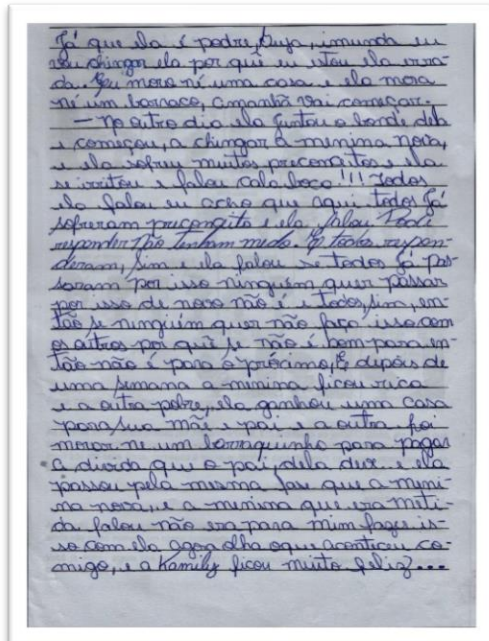 Já que ela é podre, suja, imunda eu
vou chingar ela por que eu estou ela erra-
da. Eu moro né uma casa e ela mora
né um barraco, amanhã vai começar.
— no outro dia ela juntou o bonde dela
e começou, a chingar a menina nova,
e ela sofreu muitos preconceitos e ela
se irritou e falou cala boca!!! Todos
ela falou eu acho que aqui todos já
sofreram preconceito e ela falou Podi
responder não tenham medo. E todos respon-
deram, sim e ela falou se todos já pas-
saram por isso ninguém quer passar
por isso de novo não é e todos, sim, en-
tão se ninguém quer não faço isso com
os outros por quê se não é bom para en-
tão não é para o próximo, E depois de
uma semana a minina ficou rica
e a outra pobre, ela ganhou uma casa
para sua mãe e pai e a outra foi
morar ne um barraquinho para pagar
a divida que o pai, dela deve e ela
passou pela mesma fase que a meni-
na nova, e a minina que era miti-
da falou não era para mim fazer is-
so com ela, agora olha oque aconticeu co-
migo, e a Kamily ficou muito feliz...